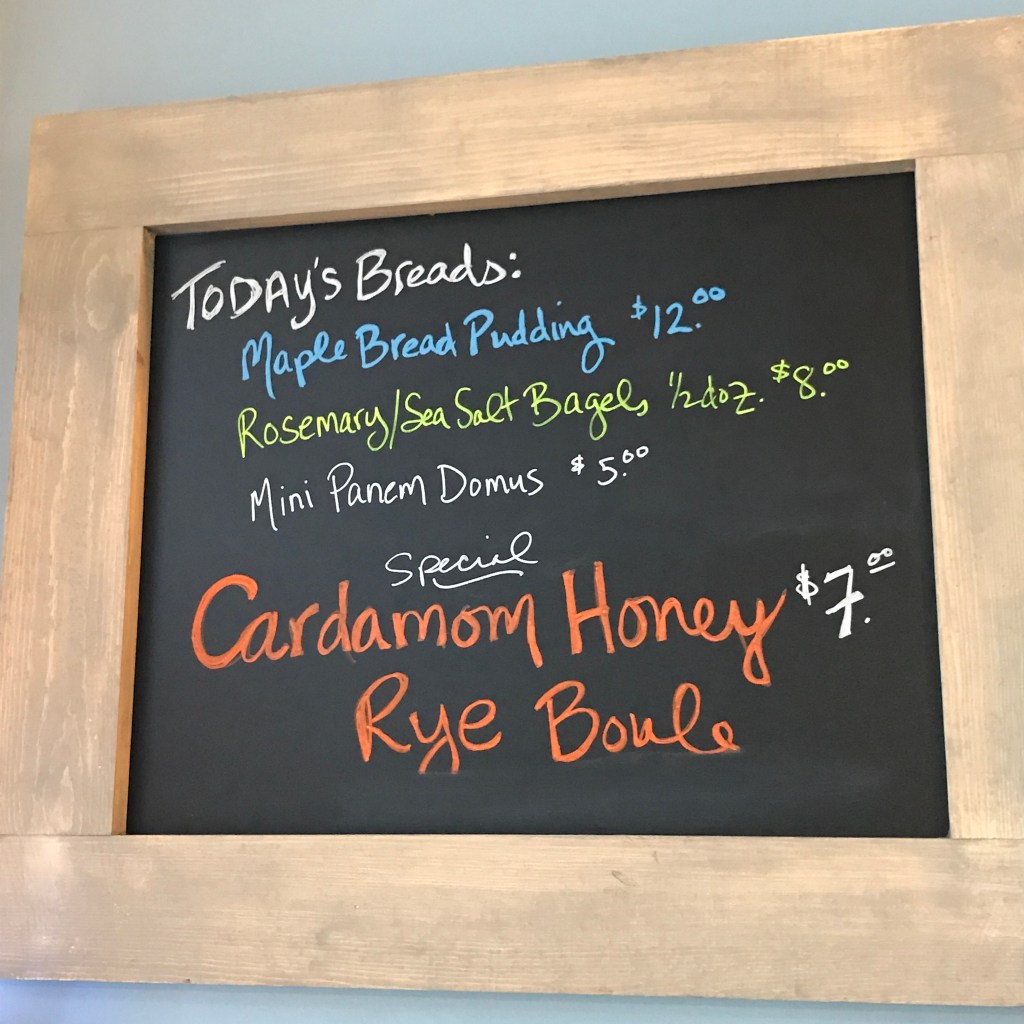 TODAY'S Breads:
Maple Bread Pudding $12.00
Rosemary/Sea Salt Bagels 1/2 doz. $8.00
Mini Panem Domus $5.00
Special
Cardamom Honey $7.00
Rye Boule